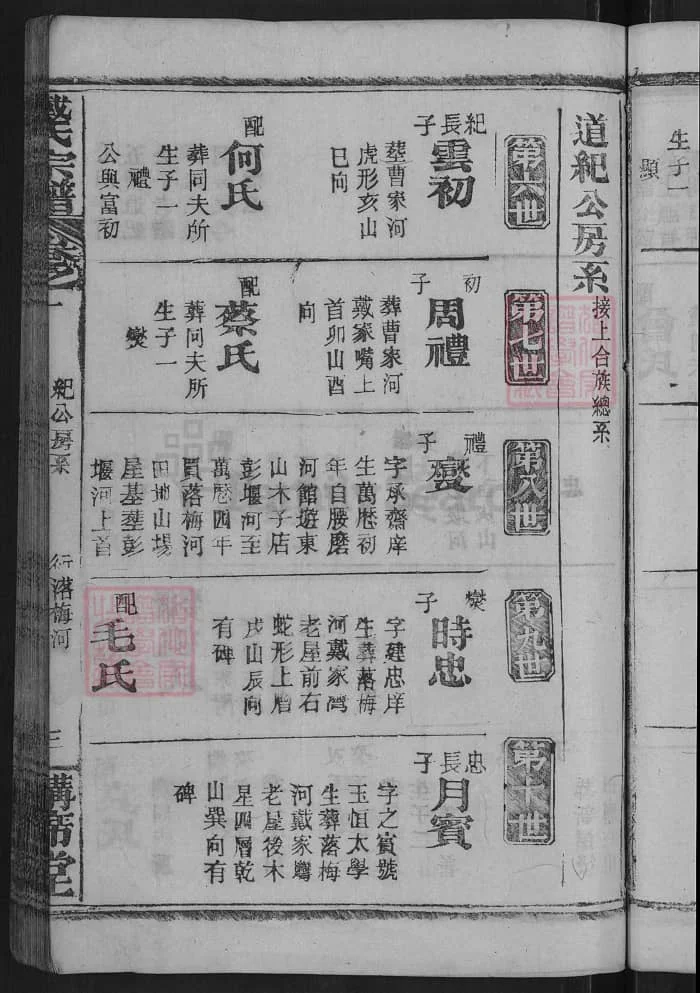 道紀公房系 接上合族總系
第六世
紀長子
雲初
塟曹家河
虎形亥山
巳向
配
何氏
葬同夫所
生子一
禮
公與富初
第七世
初子
周禮
葬曹家河
戴家嘴上
首卯山酉
向
配
蔡氏
葬同夫所
生子一
燮
第八世
禮子
燮
字承齋庠
生萬曆初
年自腰磨
河館遊東
山木子店
彭堰河至
萬曆四年
買落梅河
田地山場
屋基塟彭
堰河上首
第九世
燮子
時忠
字建忠庠
生葬落梅
河戴家灣
老屋前右
蛇形上㫼
戌山辰向
有碑
配
毛氏
第十世
忠長子
月賓
字之賓號
玉恒太學
生葬落梅
河戴家灣
老屋後木
星四層乾
山巽向有
碑
戴氏宗譜
卷之一
紀公房系
落梅河
三
講席堂
生子一
顯